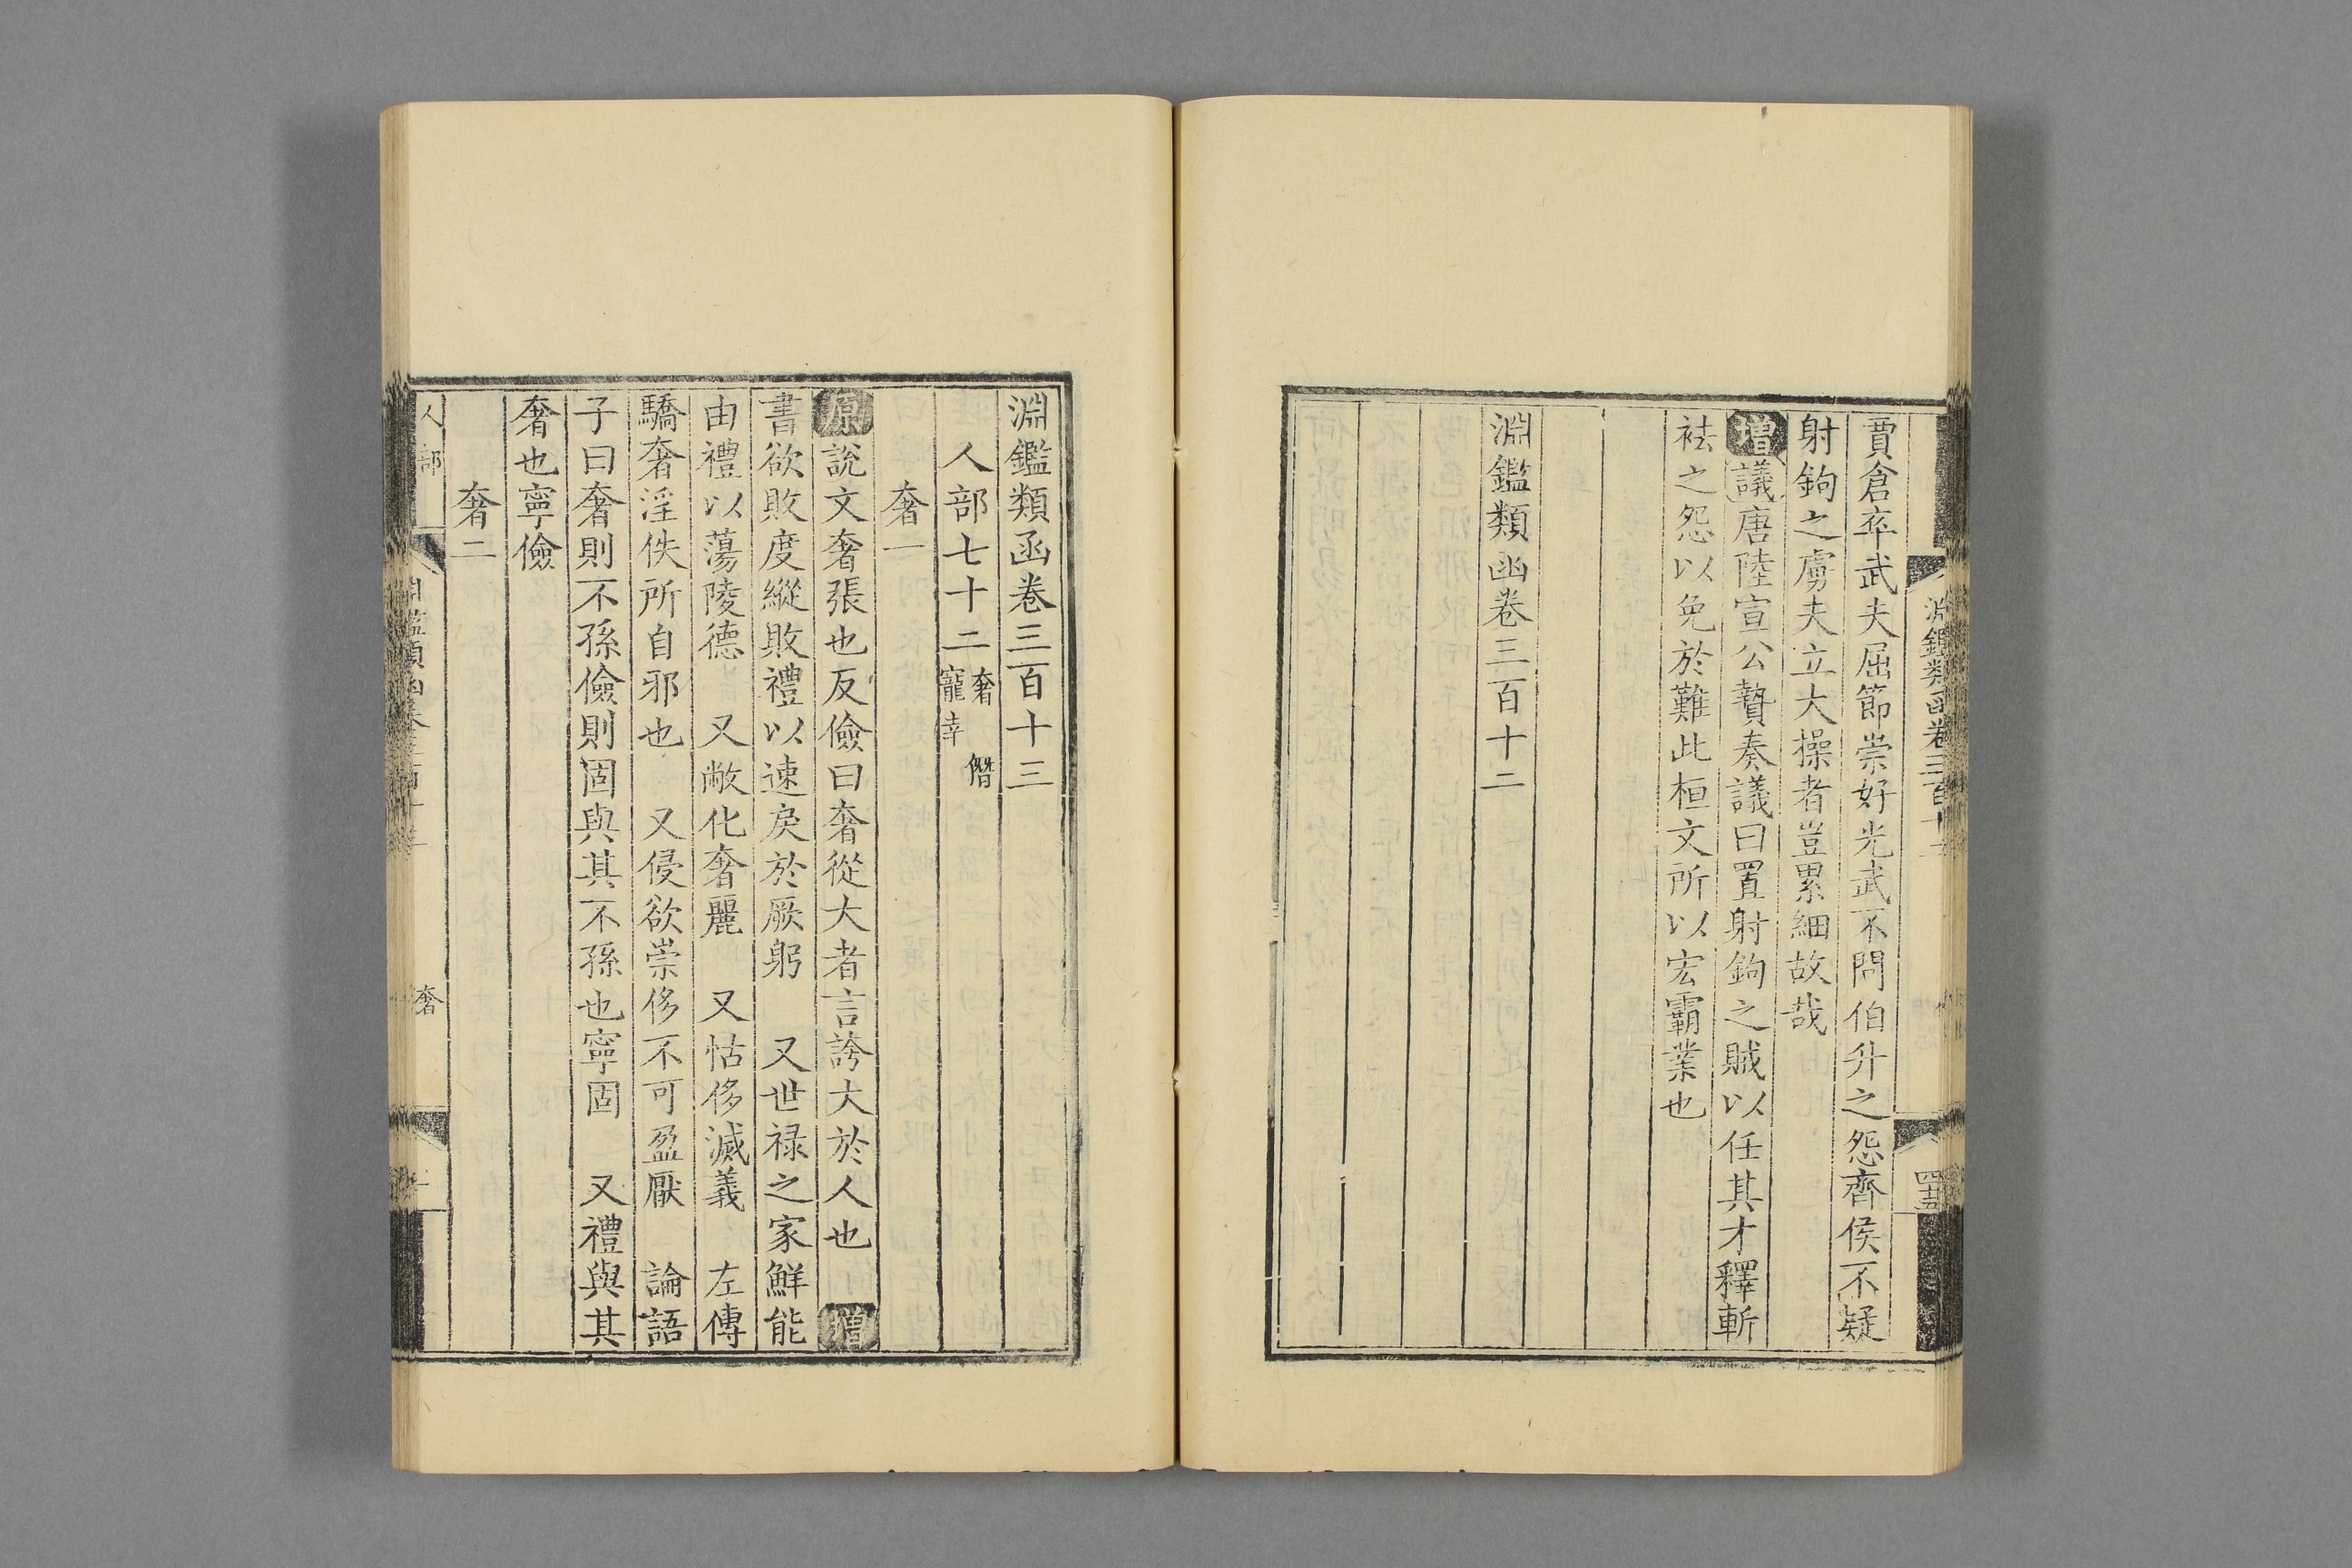 淵鑑類函卷三百十二
四十五
賈倉卒武夫屈節崇好光武不問伯升之怨齊侯不疑
射鉤之虜夫立大操者豈累細故哉
增議唐陸宣公贄奏議曰置射鉤之賊以任其才釋斬
袪之怨以免於難此桓文所以宏霸業也
淵鑑類函卷三百十二
淵鑑類函卷三百十三
人部七十二奢 僭
寵幸
奢一
原說文奢張也反儉曰奢從大者言誇大於人也 增
書欲敗度縱敗禮以速戾於厥躬 又世祿之家鮮能
由禮以蕩陵德 又敝化奢麗 又怙侈滅義 左傳
驕奢淫佚所自邪也 又侵欲崇侈不可盈厭 論語
子曰奢則不孫儉則固與其不孫也寧固 又禮與其
奢也寧儉
奢二
人部
奢